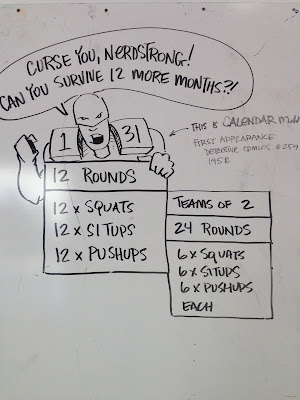 CURSE YOU, NERDSTRONG!
CAN YOU SURVIVE 12 MORE MONTHS?!
1 31
THIS IS CALENDAR MAN
FIRST APPEARANCE:
DETECTIVE COMICS #259
1958
12 ROUNDS
12 x SQUATS
12 x SITUPS
12 x PUSHUPS
TEAMS OF 2
24 ROUNDS
6 x SQUATS
6 x SITUPS
6 x PUSHUPS
EACH